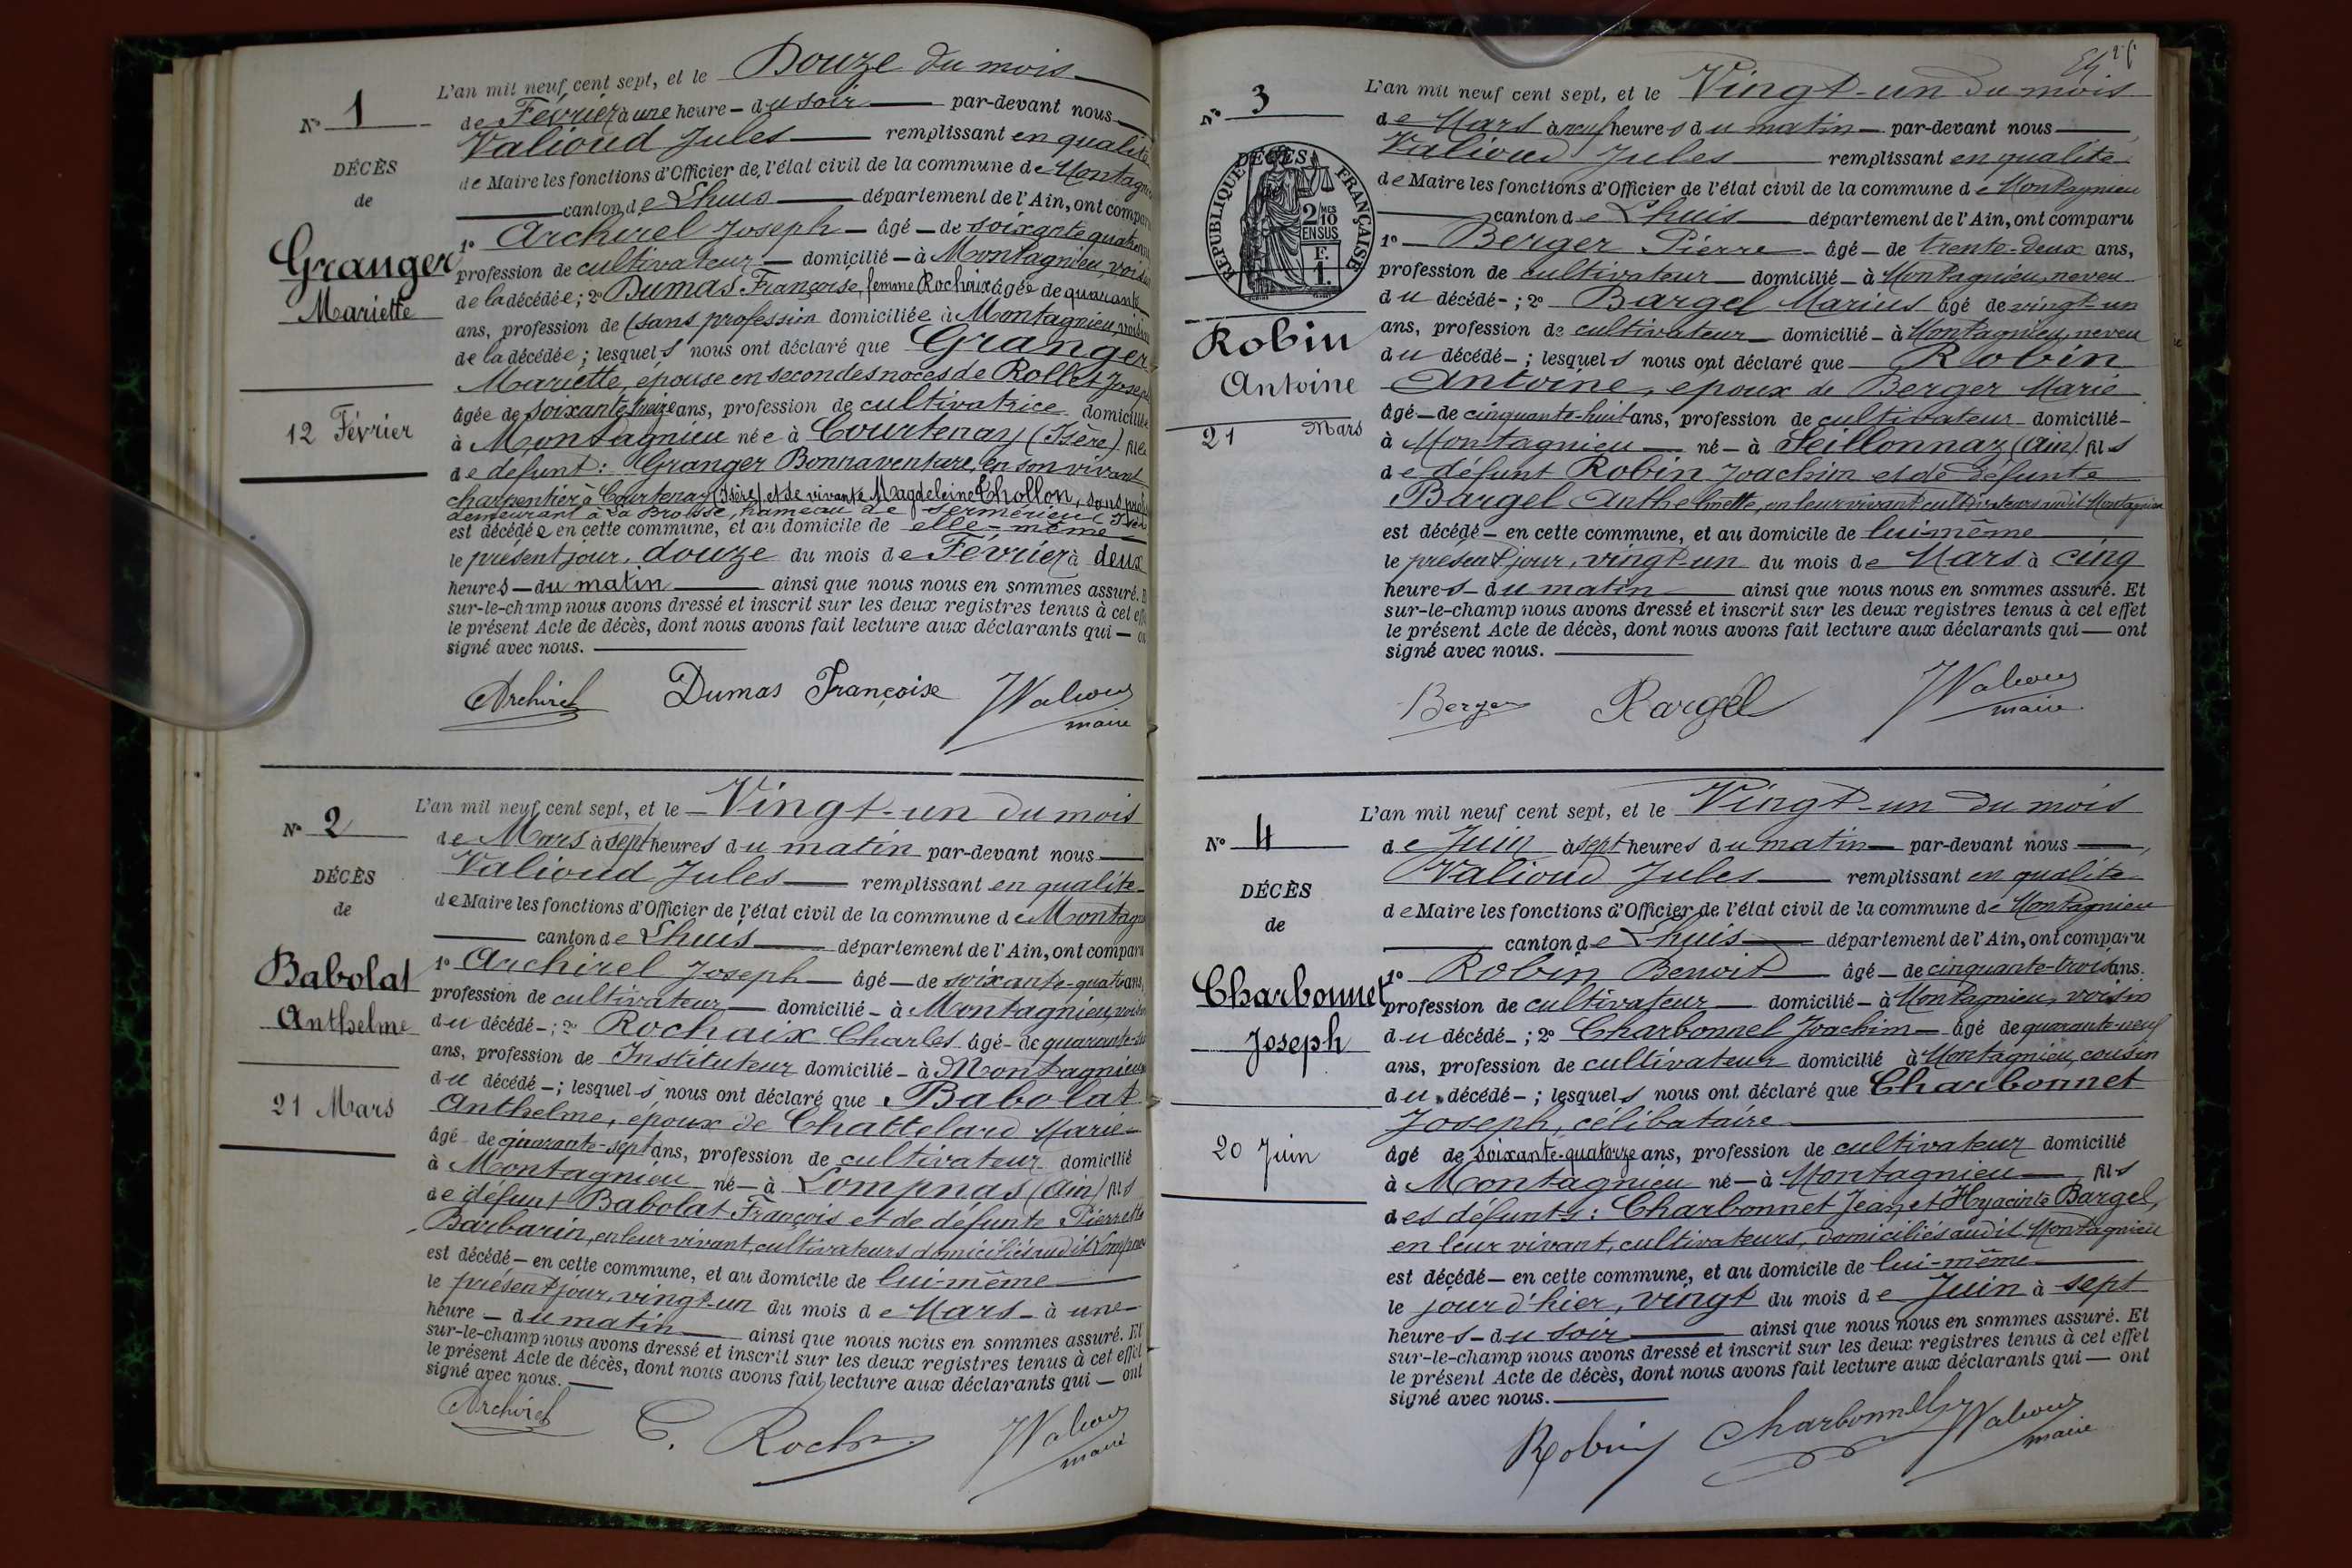 N° 1
DÉCÈS
de
Granger
Mariette
12 Février
L'an mil neuf cent sept, et le Douze du mois
de Février à une heure - du soir par-devant nous
Valioud Jules remplissant en qualité
de Maire les fonctions d'Officier de l'état civil de la commune de Montagnieu
canton de Lhuis département de l'Ain, ont comparu
1° Archirel Joseph - âgé - de soixante quatre ans,
profession de cultivateur - domicilié - à Montagnieu, voisin
de la décédée; 2° Dumas Françoise, femme Rochaix âgée de quarante
ans, profession de (sans profession domiciliée à Montagnieu, voisine
de la décédée; lesquels nous ont déclaré que Granger
Mariette, épouse en secondes noces de Rollet Joseph
âgée de soixante treize ans, profession de cultivatrice domiciliée
à Montagnieu née à Courtenay (Isère) fille
de défunt: Granger Bonnaventure, en son vivant
charpentier à Courtenay (Isère) et de vivante Magdeleine Chollon, sans prof.
demeurant à La Brosse, hameau de Sermérieu (Isère
est décédée en cette commune, et au domicile de elle-même
le présent jour, douze du mois de Février à deux
heures - du matin ainsi que nous nous en sommes assuré. E
sur-le-champ nous avons dressé et inscrit sur les deux registres tenus à cet effe
le présent Acte de décès, dont nous avons fait lecture aux déclarants qui - on
signé avec nous.
Archirel Dumas Françoise JValioud
maire
N° 2
DÉCÈS
de
Babolat
Anthelme
21 Mars
L'an mil neuf cent sept, et le Vingt-un du mois
de Mars à sept heures du matin par-devant nous
Valioud Jules remplissant en qualité
de Maire les fonctions d'Officier de l'état civil de la commune de Montagn
canton de Lhuis département de l'Ain, ont comparu
1° Archirel Joseph - âgé - de soixante-quatre ans,
profession de cultivateur - domicilié - à Montagnieu, voisin
du décédé -; 2° Rochaix Charles âgé - de quarante-
ans, profession de Instituteur domicilié - à Montagnieu
du décédé -; lesquels nous ont déclaré que Babolat
Anthelme, époux de Chattelard Marie
âgé de quarante-sept ans, profession de cultivateur domicilié
à Montagnieu né - à Lompnas (Ain) fils
de défunt Babolat François et de défunte Pierrette
Barbarin, en leur vivant, cultivateurs domiciliés audit Lompnas
est décédé - en cette commune, et au domicile de lui-même
le présent jour, vingt-un du mois de Mars - à une
heure - du matin ainsi que nous nous en sommes assuré. Et
sur-le-champ nous avons dressé et inscrit sur les deux registres tenus à cet effet
le présent Acte de décès, dont nous avons fait lecture aux déclarants qui - ont
signé avec nous.
Archirel C. Roch JValioud
maire
N° 3
DÉCÈS
RÉPUBLIQUE FRANÇAISE
2/10 MES
EN SUS
F.
1.
Robin
Antoine
21 Mars
L'an mil neuf cent sept, et le Vingt-un du mois
de Mars à neuf heures du matin - par-devant nous
Valioud Jules remplissant en qualité
de Maire les fonctions d'Officier de l'état civil de la commune de Montagnieu
canton de Lhuis département de l'Ain, ont comparu
1° Berger Pierre - âgé - de trente-deux ans,
profession de cultivateur - domicilié - à Montagnieu, neveu
du décédé -; 2° Bargel Marius âgé de vingt-un
ans, profession de cultivateur domicilié - à Montagnieu, neveu
du décédé -; lesquels nous ont déclaré que Robin
Antoine, epoux de Berger Marie
âgé - de cinquante-huit ans, profession de cultivateur domicilié -
à Montagnieu né - à Seillonnaz (Ain) fils
de défunt Robin Joachim et de défunte
Bargel Anthelmette, en leur vivant cultivateurs audit Montagnieu
est décédé - en cette commune, et au domicile de lui-même
le présent jour, vingt-un du mois de Mars à cinq
heures - du matin ainsi que nous nous en sommes assuré. Et
sur-le-champ nous avons dressé et inscrit sur les deux registres tenus à cet effet
le présent Acte de décès, dont nous avons fait lecture aux déclarants qui - ont
signé avec nous.
Berger Bargel JValioud
maire
N° 4
DÉCÈS
de
Charbonnet
Joseph
20 Juin
L'an mil neuf cent sept, et le Vingt-un du mois
de Juin à sept heures du matin - par-devant nous
Valioud Jules remplissant en qualité
de Maire les fonctions d'Officier de l'état civil de la commune de Montagnieu
canton de Lhuis département de l'Ain, ont comparu
1° Robin Benoit âgé - de cinquante-trois ans.
profession de cultivateur - domicilié - à Montagnieu, voisin
du décédé -; 2° Charbonnel Joachim - âgé de quarante-neuf
ans, profession de cultivateur domicilié à Montagnieu, cousin
du décédé -; lesquels nous ont déclaré que Charbonnet
Joseph, célibataire
âgé de soixante-quatorze ans, profession de cultivateur domicilié
à Montagnieu né - à Montagnieu fils
des défunts: Charbonnet Jean et Hyacinte Bargel,
en leur vivant, cultivateurs, domiciliés audit Montagnieu
est décédé - en cette commune, et au domicile de lui-même
le jour d'hier, vingt du mois de Juin à sept
heures - du soir ainsi que nous nous en sommes assuré. Et
sur-le-champ nous avons dressé et inscrit sur les deux registres tenus à cet effet
le présent Acte de décès, dont nous avons fait lecture aux déclarants qui - ont
signé avec nous.
Robin Charbonnel JValioud
maire